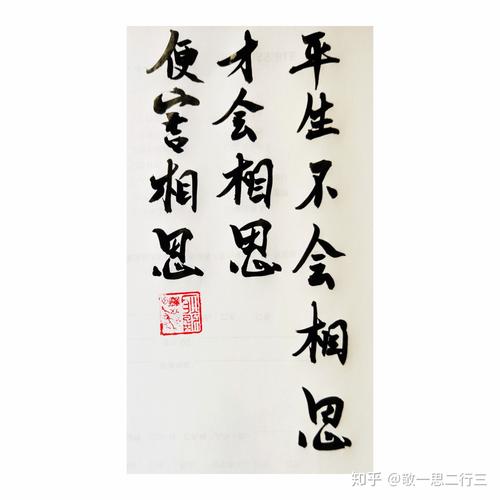 平生不会相思
才会相思
便害相思
知乎 @敬一思二行三